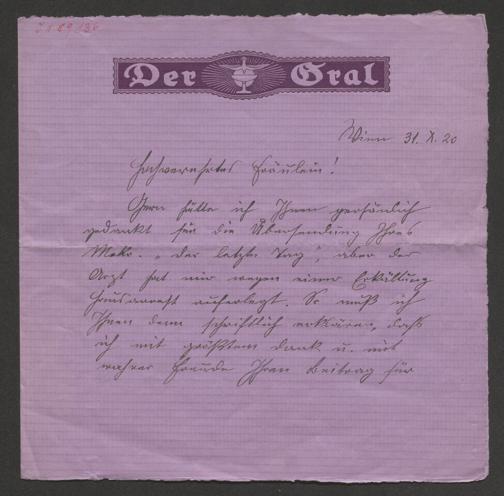 Der Gral
Wien 31. X. 20
Hochverehrtes Fräulein!
Gern hätte ich Ihnen persönlich
gedankt für die Übersendung Ihres
Mskr. „Der letzte Tag", aber der
Arzt hat mir wegen einer Erkältung
Hausarrest auferlegt. So muß ich
Ihnen denn schriftlich erklären, daß
ich mit größtem Dank u. mit
wahrer Freude Ihren Beitrag für